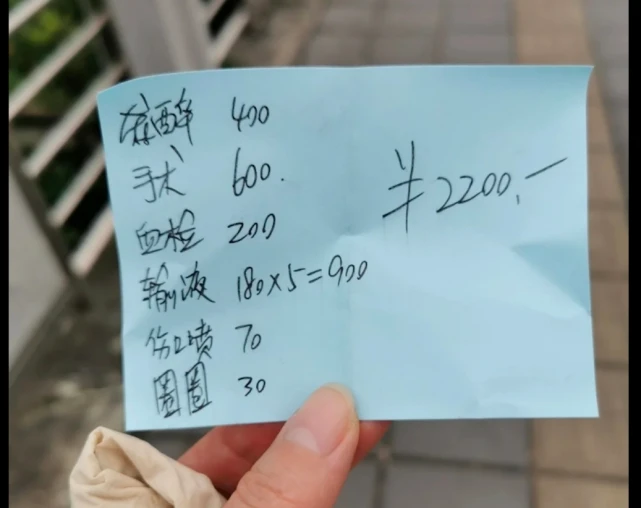 麻醉 400
手术 600.
血检 200
输液 180×5=900
伤口喷 70
圈圈 30
¥2200.-